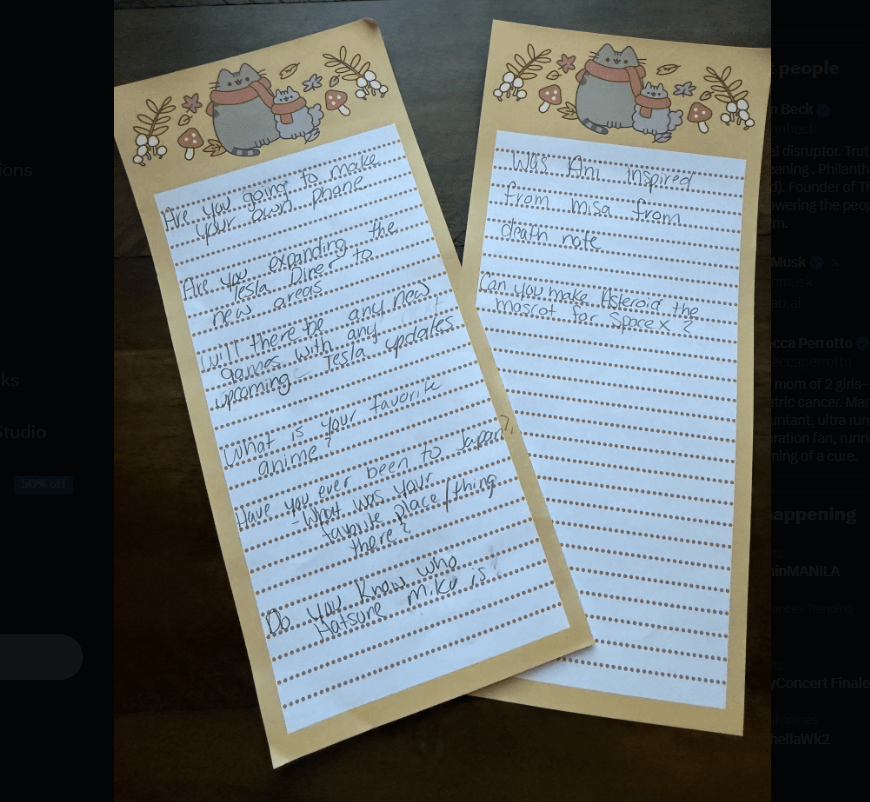 Are you going to make
your own phone
Are you expanding the
Tesla Diner to
new areas
will there be any new
games with any
upcoming Tesla updates
What is your favorite
anime?
Have you ever been to Japan?
- What was your
favorite place/thing
there?
Do you know who
Hatsune Miku is
Was Ani inspired
from misa from
death note
Can you make Asteroid the
mascot for SpaceX ?
ions
ks
Studio
50% off
people
n Beck
nbeck
al disruptor. Trut
eaning. Philanth
d). Founder of Th
owering the peop
m.
Musk
nmusk
cca Perrotto
eccaperrotto
mom of 2 girls—
atric cancer. Mar
untant, ultra run
ration fan, runn
ning of a cure.
appening
inMANILA
yConcert Finale
hellaWk2